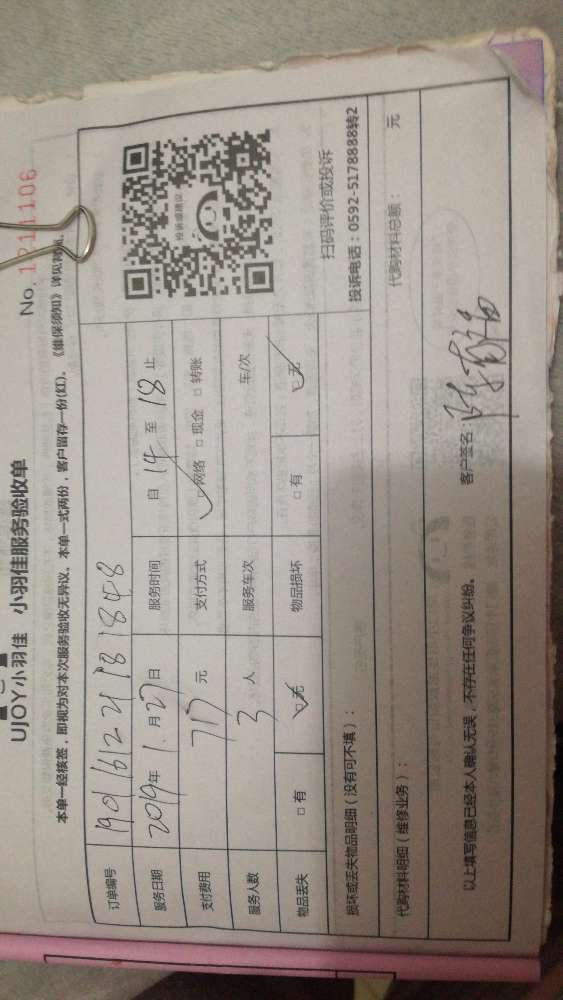 No. 1
1106
UJOY小羽佳 小羽佳服务验收单
本单一经核签，即视为对本次服务验收无异议。本单一式两份，客户留存一份(红)。《维保须知》详见背面。
订单编号 190161221818 48
服务日期 2019年 1 月 27日 服务时间 自 14 至 18 止
支付费用 717 元 支付方式 ☑网络 □现金 □转账
服务人数 3 人 服务车次 车/次
物品丢失 □有 ☑无 物品损坏 □有 ☑无
投诉或建议
扫码评价或投诉
投诉电话：0592-5178888转2
损坏或丢失物品明细（没有可不填）：
代购材料明细（维修业务）： 代购材料总额： 元
以上填写信息已经本人确认无误，不存在任何争议纠纷。 客户签名：